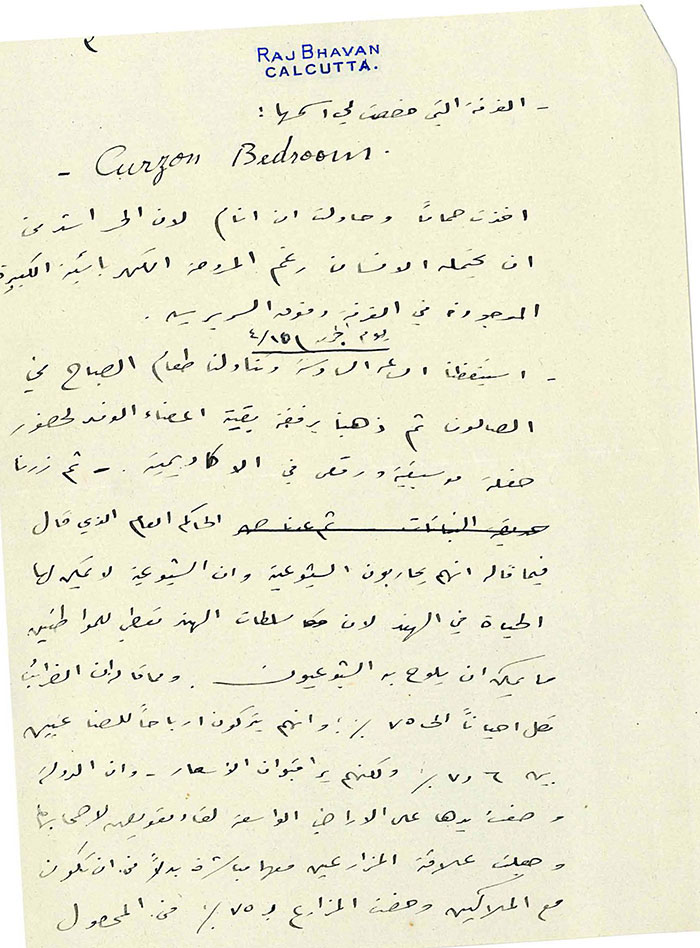 ٣
RAJ BHAVAN
CALCUTTA.
- الغرفة التي خصصت لي اسمها :
- Curzon Bedroom.
اخذت حماماً وحاولت ان انام لان الحر اشد من
ان يحتمله الانسان رغم المروحة الكهربائية الكبيرة
الموجودة في الغرفة وفوق السرير .
يوم ٤/١٥
- استيقظنا الساعة السادسة وتناولنا طعام الصباح في
الصالون ثم ذهبنا برفقة بقية اعضاء الوفد لحضور
حفلة موسيقية ورقص في الاكاديمية . - ثم زرنا
حديقة النباتات ثم عدنا الحاكم العام الذي قال
فيما قاله انهم يحاربون الشيوعية وان الشيوعية لا يمكن لها
الحياة في الهند لان سلطات الهند تعطي للمواطنين
ما يمكن ان يلوح به الشيوعيون . ومما قاله ان الضرائب
تصل احياناً الى ٧٥ ٪ وانهم يتركون ارباحاً للصناعيين
بين ٦ و ٧ ٪ ولكنهم يراقبون الاسعار - وان الدولة
وضعت يدها على الاراضي الواسعة لقاء تعويض لاصحابها
وجعلت علاقة المزارعين معها مباشرة بدلاً من ان تكون
مع الملاكين وخصت المزارع بـ ٧٥ ٪ من المحصول